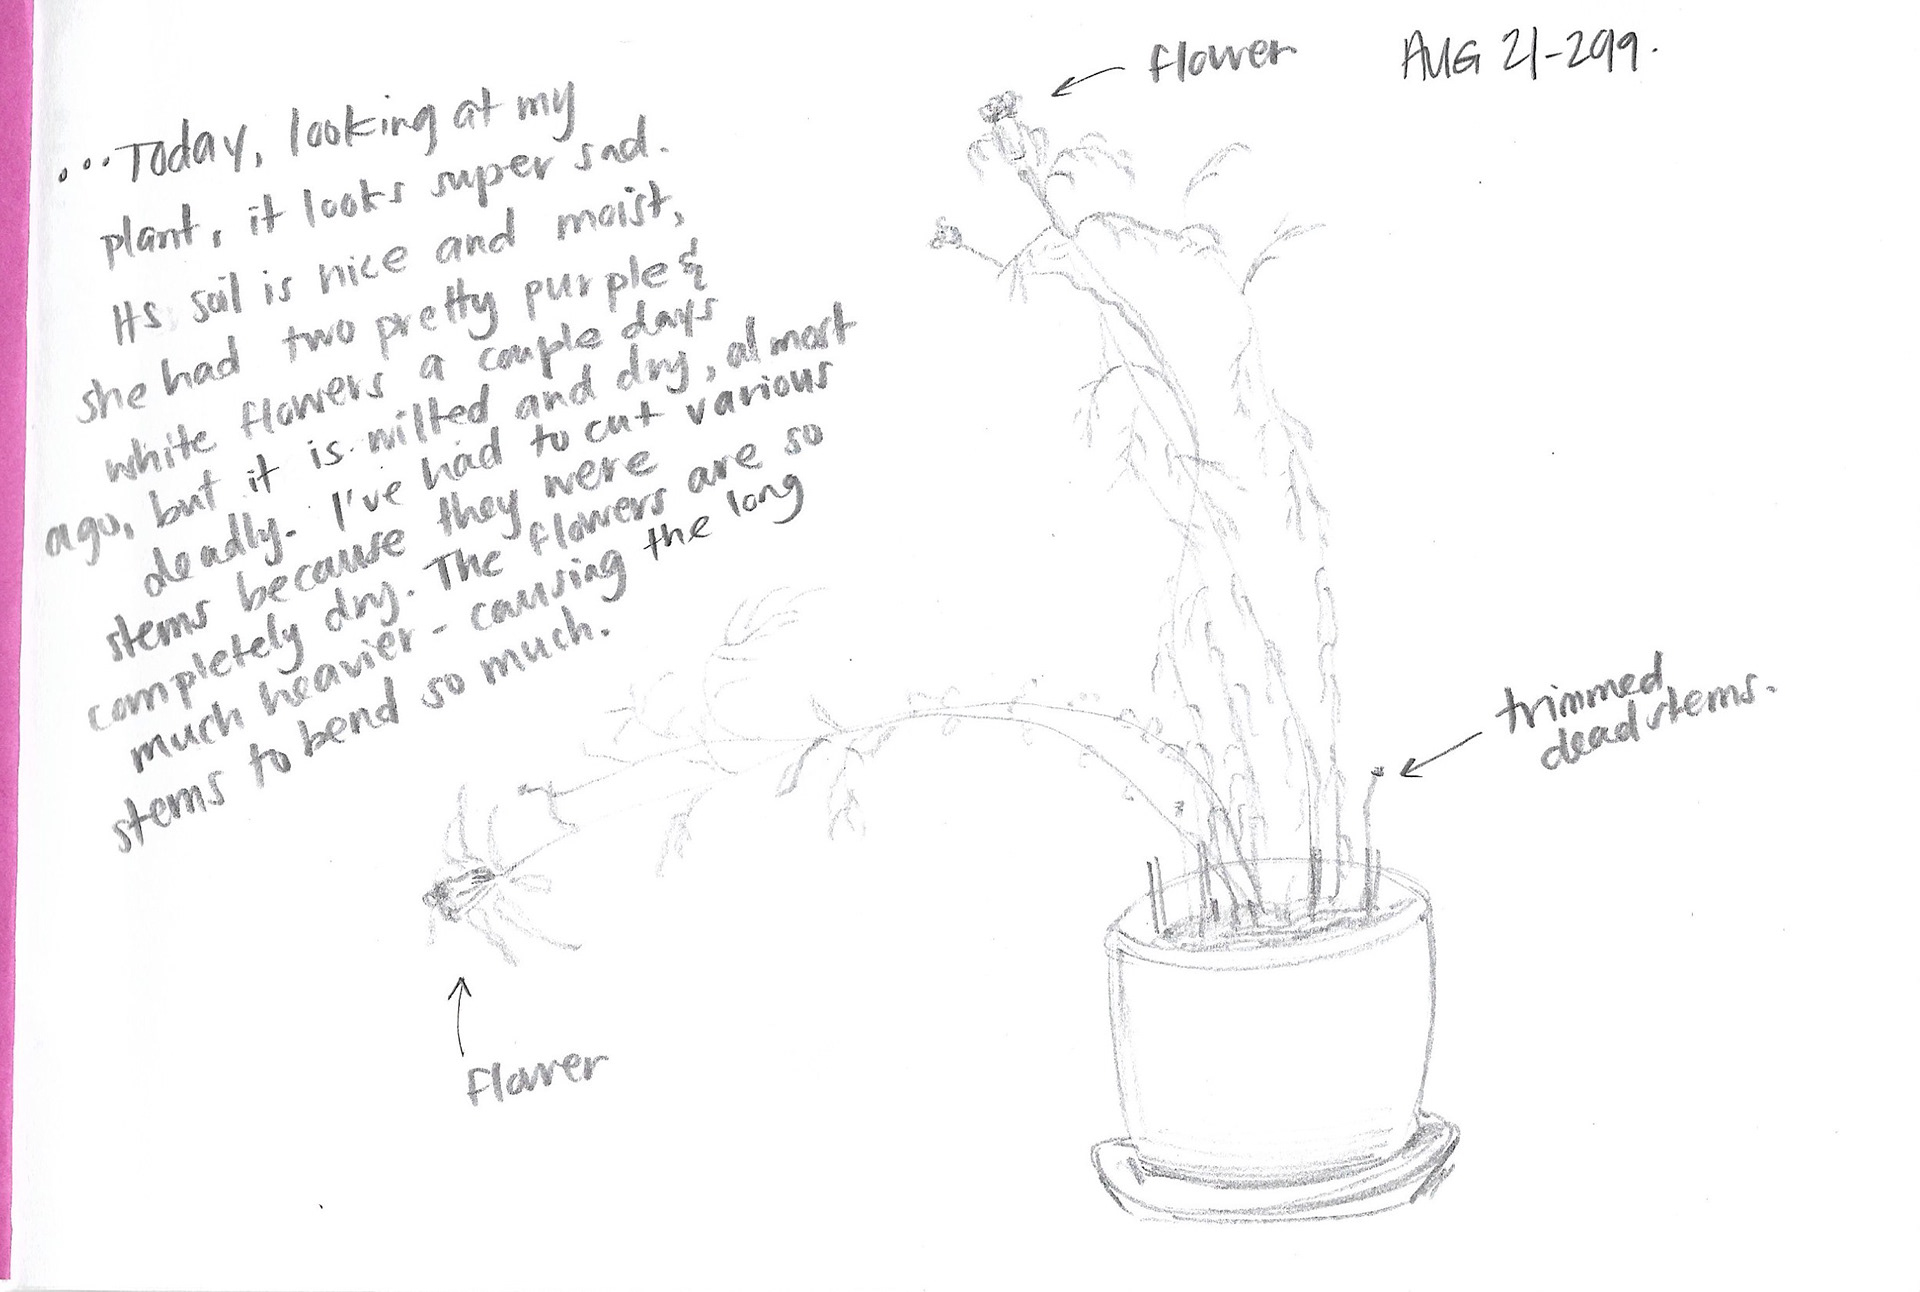 flower
AUG 21-2019.
...Today, looking at my
plant, it looks super sad.
Its soil is nice and moist,
she had two pretty purple &
white flowers a couple days
ago, but it is wilted and dry, almost
deadly. I've had to cut various
stems because they were
completely dry. The flowers are so
much heavier - causing the long
stems to bend so much.
trimmed
dead stems.
flower